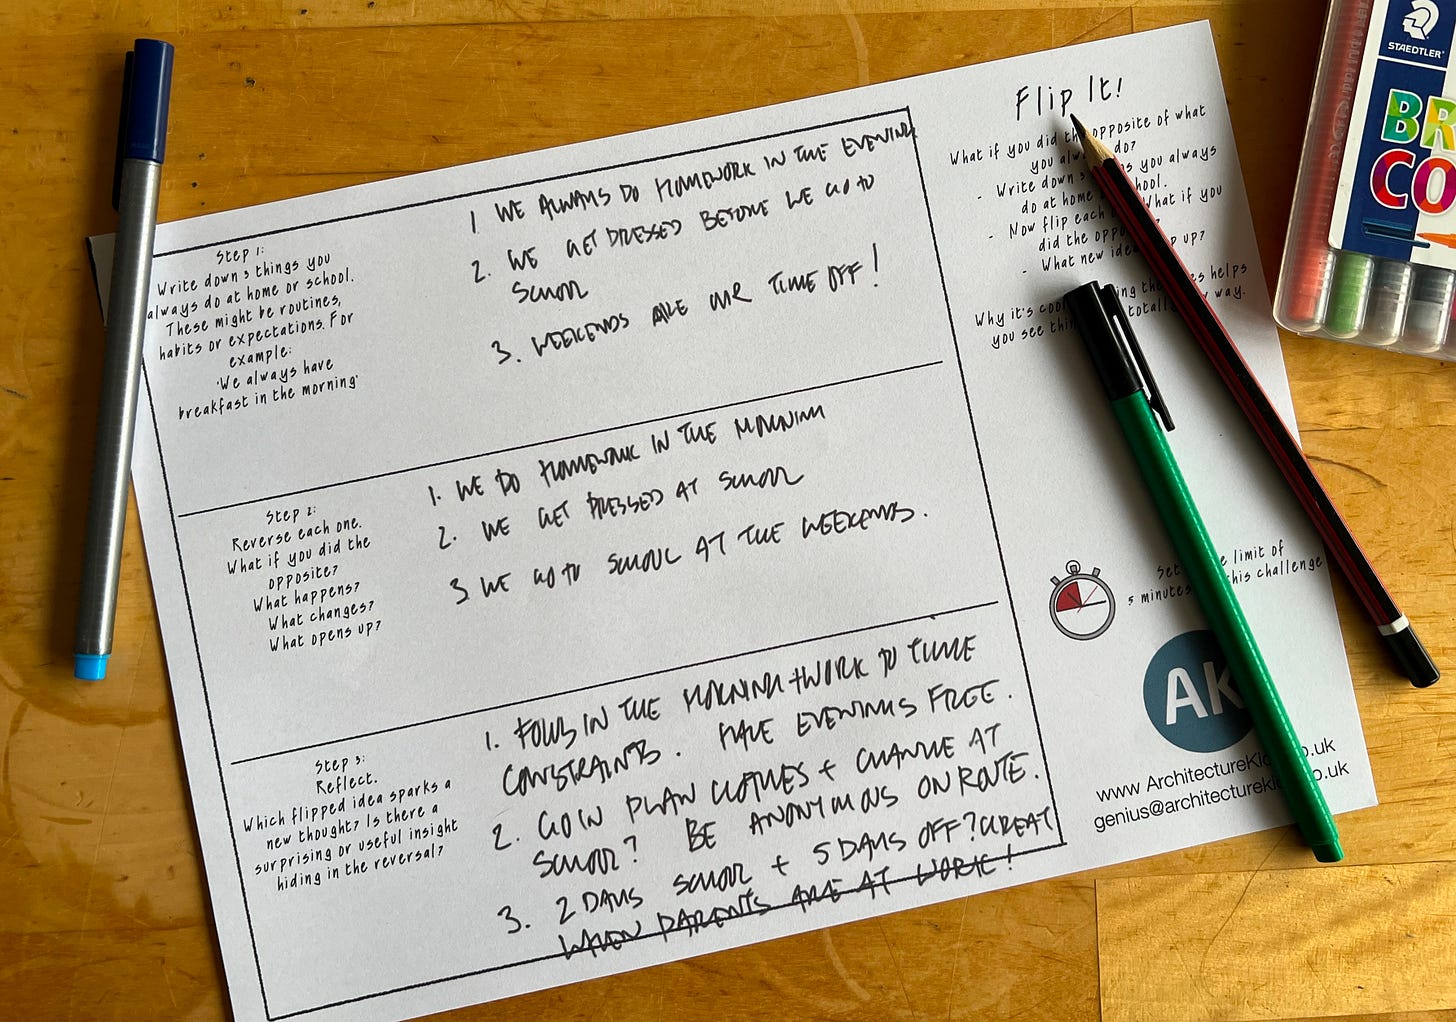 Flip It!
What if you did the opposite of what
you always do?
- Write down 3 things you always
do at home school.
- Now flip each What if you
did the oppo ?
- What new idea p up?
Why it's cool ing the es helps
you see thin totally way.
Step 1:
Write down 3 things you
always do at home or school.
These might be routines,
habits or expectations. For
example:
'We always have
breakfast in the morning'
1. WE ALWAYS DO HOMEWORK IN THE EVENING
2. WE GET DRESSED BEFORE WE GO TO
SCHOOL
3. WEEKENDS ARE OUR TIME OFF!
Step 2:
Reverse each one.
What if you did the
opposite?
What happens?
What changes?
What opens up?
1. WE DO HOMEWORK IN THE MORNING
2. WE GET DRESSED AT SCHOOL
3 WE GO TO SCHOOL AT THE WEEKENDS.
Step 3:
Reflect.
Which flipped idea sparks a
new thought? Is there a
surprising or useful insight
hiding in the reversal?
1. FOCUS IN THE MORNING + WORK TO TIME
CONSTRAINTS. HAVE EVENINGS FREE.
2. GO IN PLAIN CLOTHES + CHANGE AT
SCHOOL? BE ANONYMOUS ON ROUTE.
3. 2 DAYS SCHOOL + 5 DAYS OFF? GREAT
WHEN PARENTS ARE AT WORK!
Set e limit of
5 minutes this challenge
AK
www ArchitectureKid o.uk
genius@architectureki o.uk
STAEDTLER
BR
CO